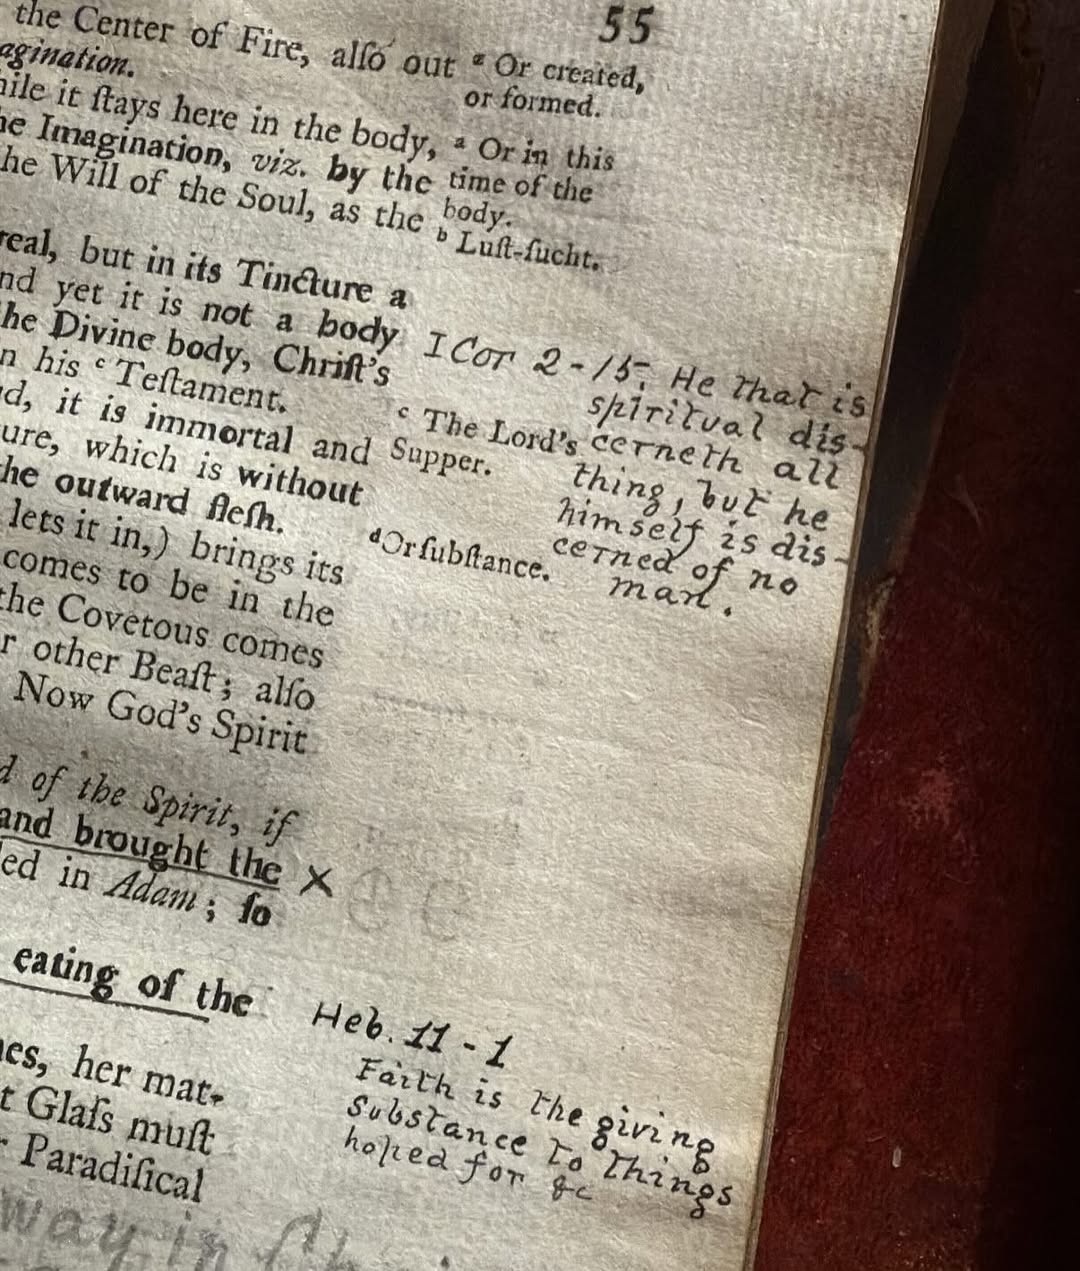 55
the Center of Fire, alſo out
agination.
ᶻ Or created,
or formed.
ile it ſtays here in the body,
he Imagination, viz. by the
he Will of the Soul, as the
ᵃ Or in this
time of the
body.
ᵇ Luſt-ſucht.
real, but in its Tincture a
nd yet it is not a body
he Divine body, Chriſt's
n his ᶜ Teſtament.
d, it is immortal and
ure, which is without
he outward fleſh.
lets it in,) brings its
comes to be in the
the Covetous comes
r other Beaſt; alſo
Now God's Spirit
I Cor 2-15; He that is
spiritual dis-
cerneth all
thing, but he
himself is dis-
cerned of no
man.
ᶜ The Lord's
Supper.
ᵈ Or ſubſtance.
d of the Spirit, if
and brought the X
ed in Adam; ſo
eating of the
es, her mat-
t Glaſs muſt
Paradiſical
Heb. 11-1
Faith is the giving
substance to things
hoped for &c
way in